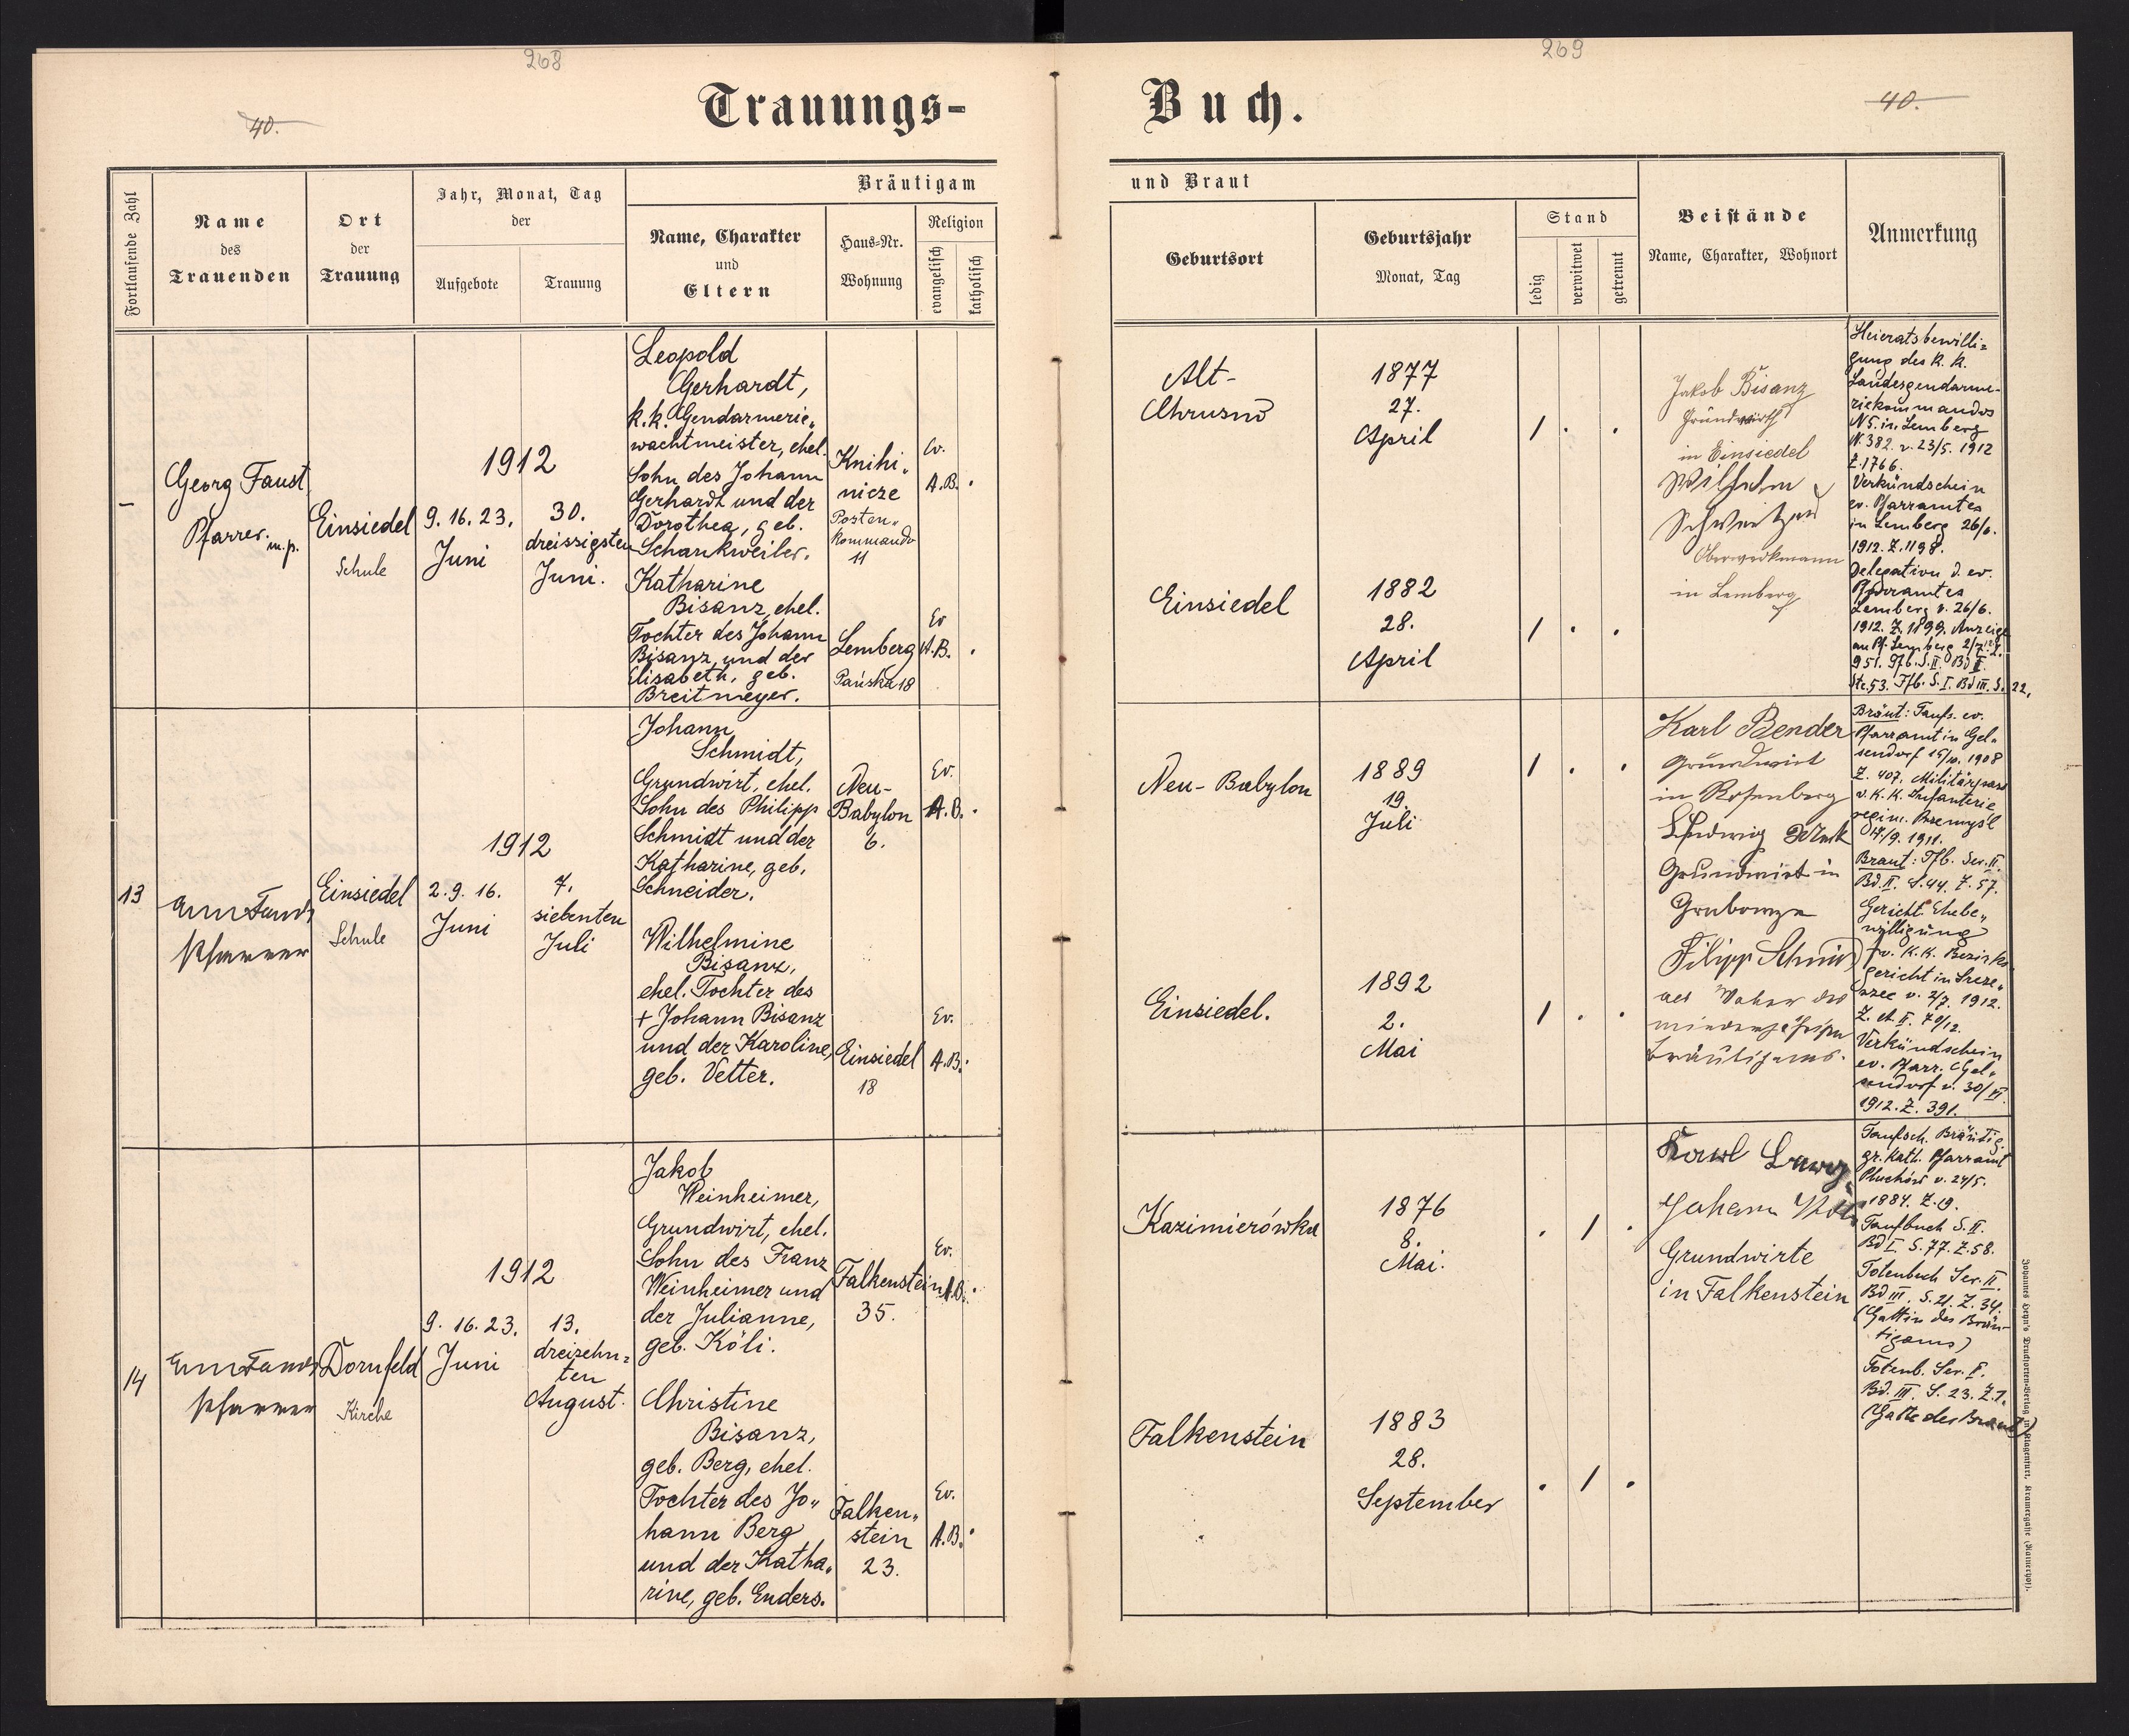 268
269
40.
40.
Trauungs-
Buch.
Fortlaufende Zahl
Name
des
Trauenden
Ort
der
Trauung
Jahr, Monat, Tag
der
Aufgebote
Trauung
Bräutigam
Name, Charakter
und
Eltern
Haus-Nr.
Wohnung
Religion
evangelisch
katholisch
und Braut
Geburtsort
Geburtsjahr
Monat, Tag
Stand
ledig
verwitwet
getrennt
Beistände
Name, Charakter, Wohnort
Anmerkung
–
Georg Faust
Pfarrer. m.p.
Einsiedel
Schule
1912
9. 16. 23.
Juni
30.
dreissigsten
Juni.
Leopold
Gerhardt,
k.k. Gendarmerie„
wachtmeister, ehel.
Sohn des Johann
Gerhardt und der
Dorothea, geb.
Schankweiler.
Knihi„
nicze
Posten„
kommando
11
Ev.
A.B. .
Katharine
Bisanz, ehel.
Tochter des Johann
Bisanz und der
Elisabeth, geb.
Breitmeyer.
Lemberg
Pańska 18
Ev
A.B. .
Alt-
Chrusno
1877
27.
April
/ . .
Einsiedel
1882
28.
April
/ . .
Jakob Bisanz
Grundwirth
in Einsiedel
Wilhelm
Schweitzer
Oberwerkmann
in Lemberg
Heiratsbewilli=
gung des k. k.
Landesgendarme-
riekommandos
N 5. in Lemberg
N. 382. v. 23/5. 1912
Z. 1766.
Verkündschein
ev. Pfarramtes
in Lemberg 26/6.
1912. Z. 1198.
Delegation d. ev.
Pfarramtes
Lemberg v. 26/6.
1912. Z. 1899. Anzeige
an Pf. Lemberg 2/7. 12. Z.
951. Gfb. S. II. Bd II.
Str. 53. Tfb. S. I. Bd III. S. 22.
13
Faust
Pfarrer
Einsiedel
Schule
1912
2. 9. 16.
Juni
7.
siebenten
Juli
Johann
Schmidt,
Grundwirt, ehel.
Sohn des Philipp
Schmidt und der
Katharine, geb.
Schneider.
Neu-
Babylon
6.
Ev.
A.B. .
Wilhelmine
Bisanz,
ehel. Tochter des
+ Johann Bisanz
und der Karoline,
geb. Vetter.
Einsiedel
18
Ev.
A.B. .
Neu-Babylon
1889
19.
Juli
/ . .
Einsiedel.
1892
2.
Mai
/ . .
Karl Bender
Grundwirt
in Rosenberg
Ludwig
Grundwirt in
Filipp Schmidt
als Vater des
minderjährigen
Bräutigams.
Bräut: Taufs. ev.
Pfarramt in Gel„
sendorf 15/10. 1908
Z. 407. Militärpass
v. K. K. Infanterie
regim. Przemyśl
14/9. 1911.
Braut: Tfb. Ser. II.
Bd. II. S. 44. Z. 57.
Gericht. Ehebe„
willigung
v. K. K. Bezirks
gericht in Szcze„
rzec v. 2/7. 1912.
Verkündschein
ev. Pfarr. Gel„
sendorf v. 30/VI.
1912. Z. 391.
14
Faust
Pfarrer
Dornfeld
Kirche
1912
9. 16. 23.
Juni
13.
dreizehn=
ten
August.
Jakob
Weinheimer,
Grundwirt, ehel.
Sohn des Franz
Weinheimer und
der Julianne,
geb. Köli.
Falkenstein
35.
Ev.
A.B. .
Christine
Bisanz,
geb. Berg, ehel.
Tochter des Jo„
hann Berg
und der Katha„
rine, geb. Enders.
Falken„
stein
23.
Ev.
A.B. .
Kazimierówka
1876
8.
Mai.
. / .
Falkenstein
1883
28.
September
. / .
Karl
Johann
Grundwirte
in Falkenstein
Taufsch. Bräutig.
gr. kath. Pfarramt
v. 24/5.
1884. Z. 19.
Taufbuch S. II.
Bd I. S. 77. Z. 58.
Totenbuch Ser. II.
Bd III. S. 21. Z. 34.
(Gattin des Bräu-
tigams)
Totenb. Ser. I.
Bd. III. S. 23. Z. 1.
(Gatte der Braut)
Johannes Heyn's Drucksorten-Verlag in Klagenfurt, Kramergasse (Rainerhof).